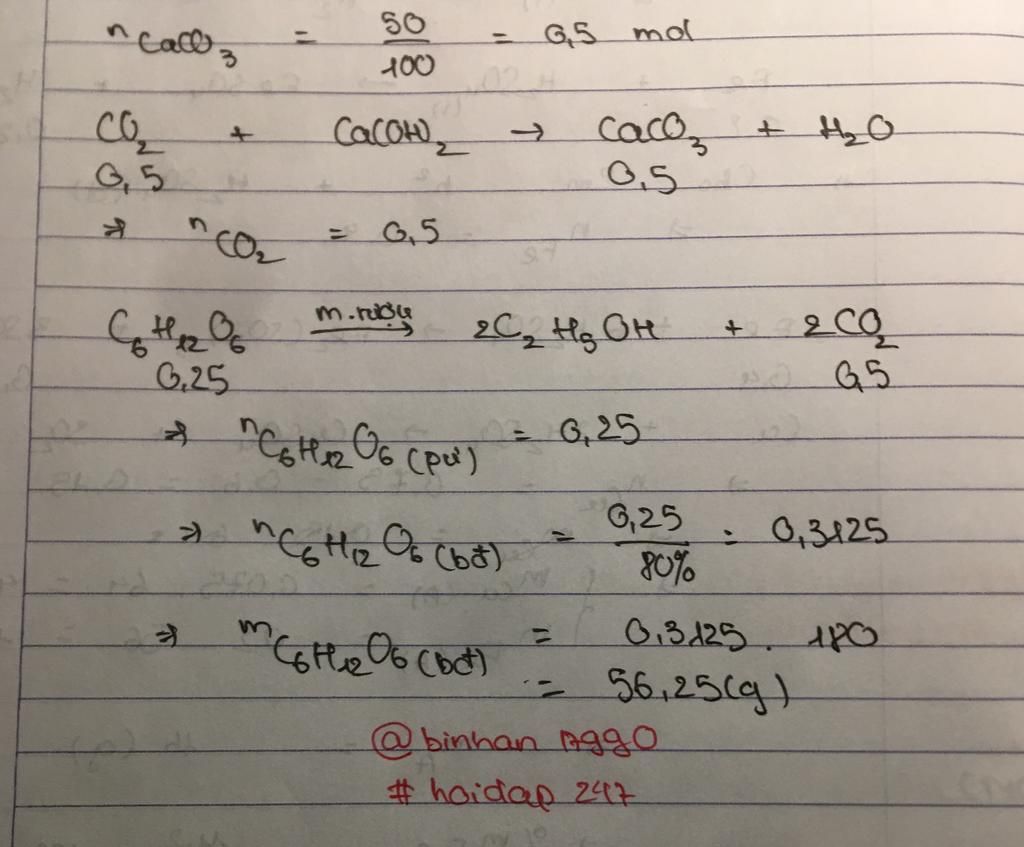 nCaCO₃ = 50/100 = 0,5 mol
CO₂ + Ca(OH)₂ → CaCO₃ + H₂O
0,5 0,5
⇒ nCO₂ = 0,5
C₆H₁₂O₆ —m.rượu→ 2C₂H₅OH + 2CO₂
0,25 0,5
⇒ nC₆H₁₂O₆ (pư) = 0,25
⇒ nC₆H₁₂O₆ (bđ) = 0,25/80% = 0,3125
⇒ mC₆H₁₂O₆ (bđ) = 0,3125 . 180
= 56,25(g)
@binhan1990
# hoidap 247